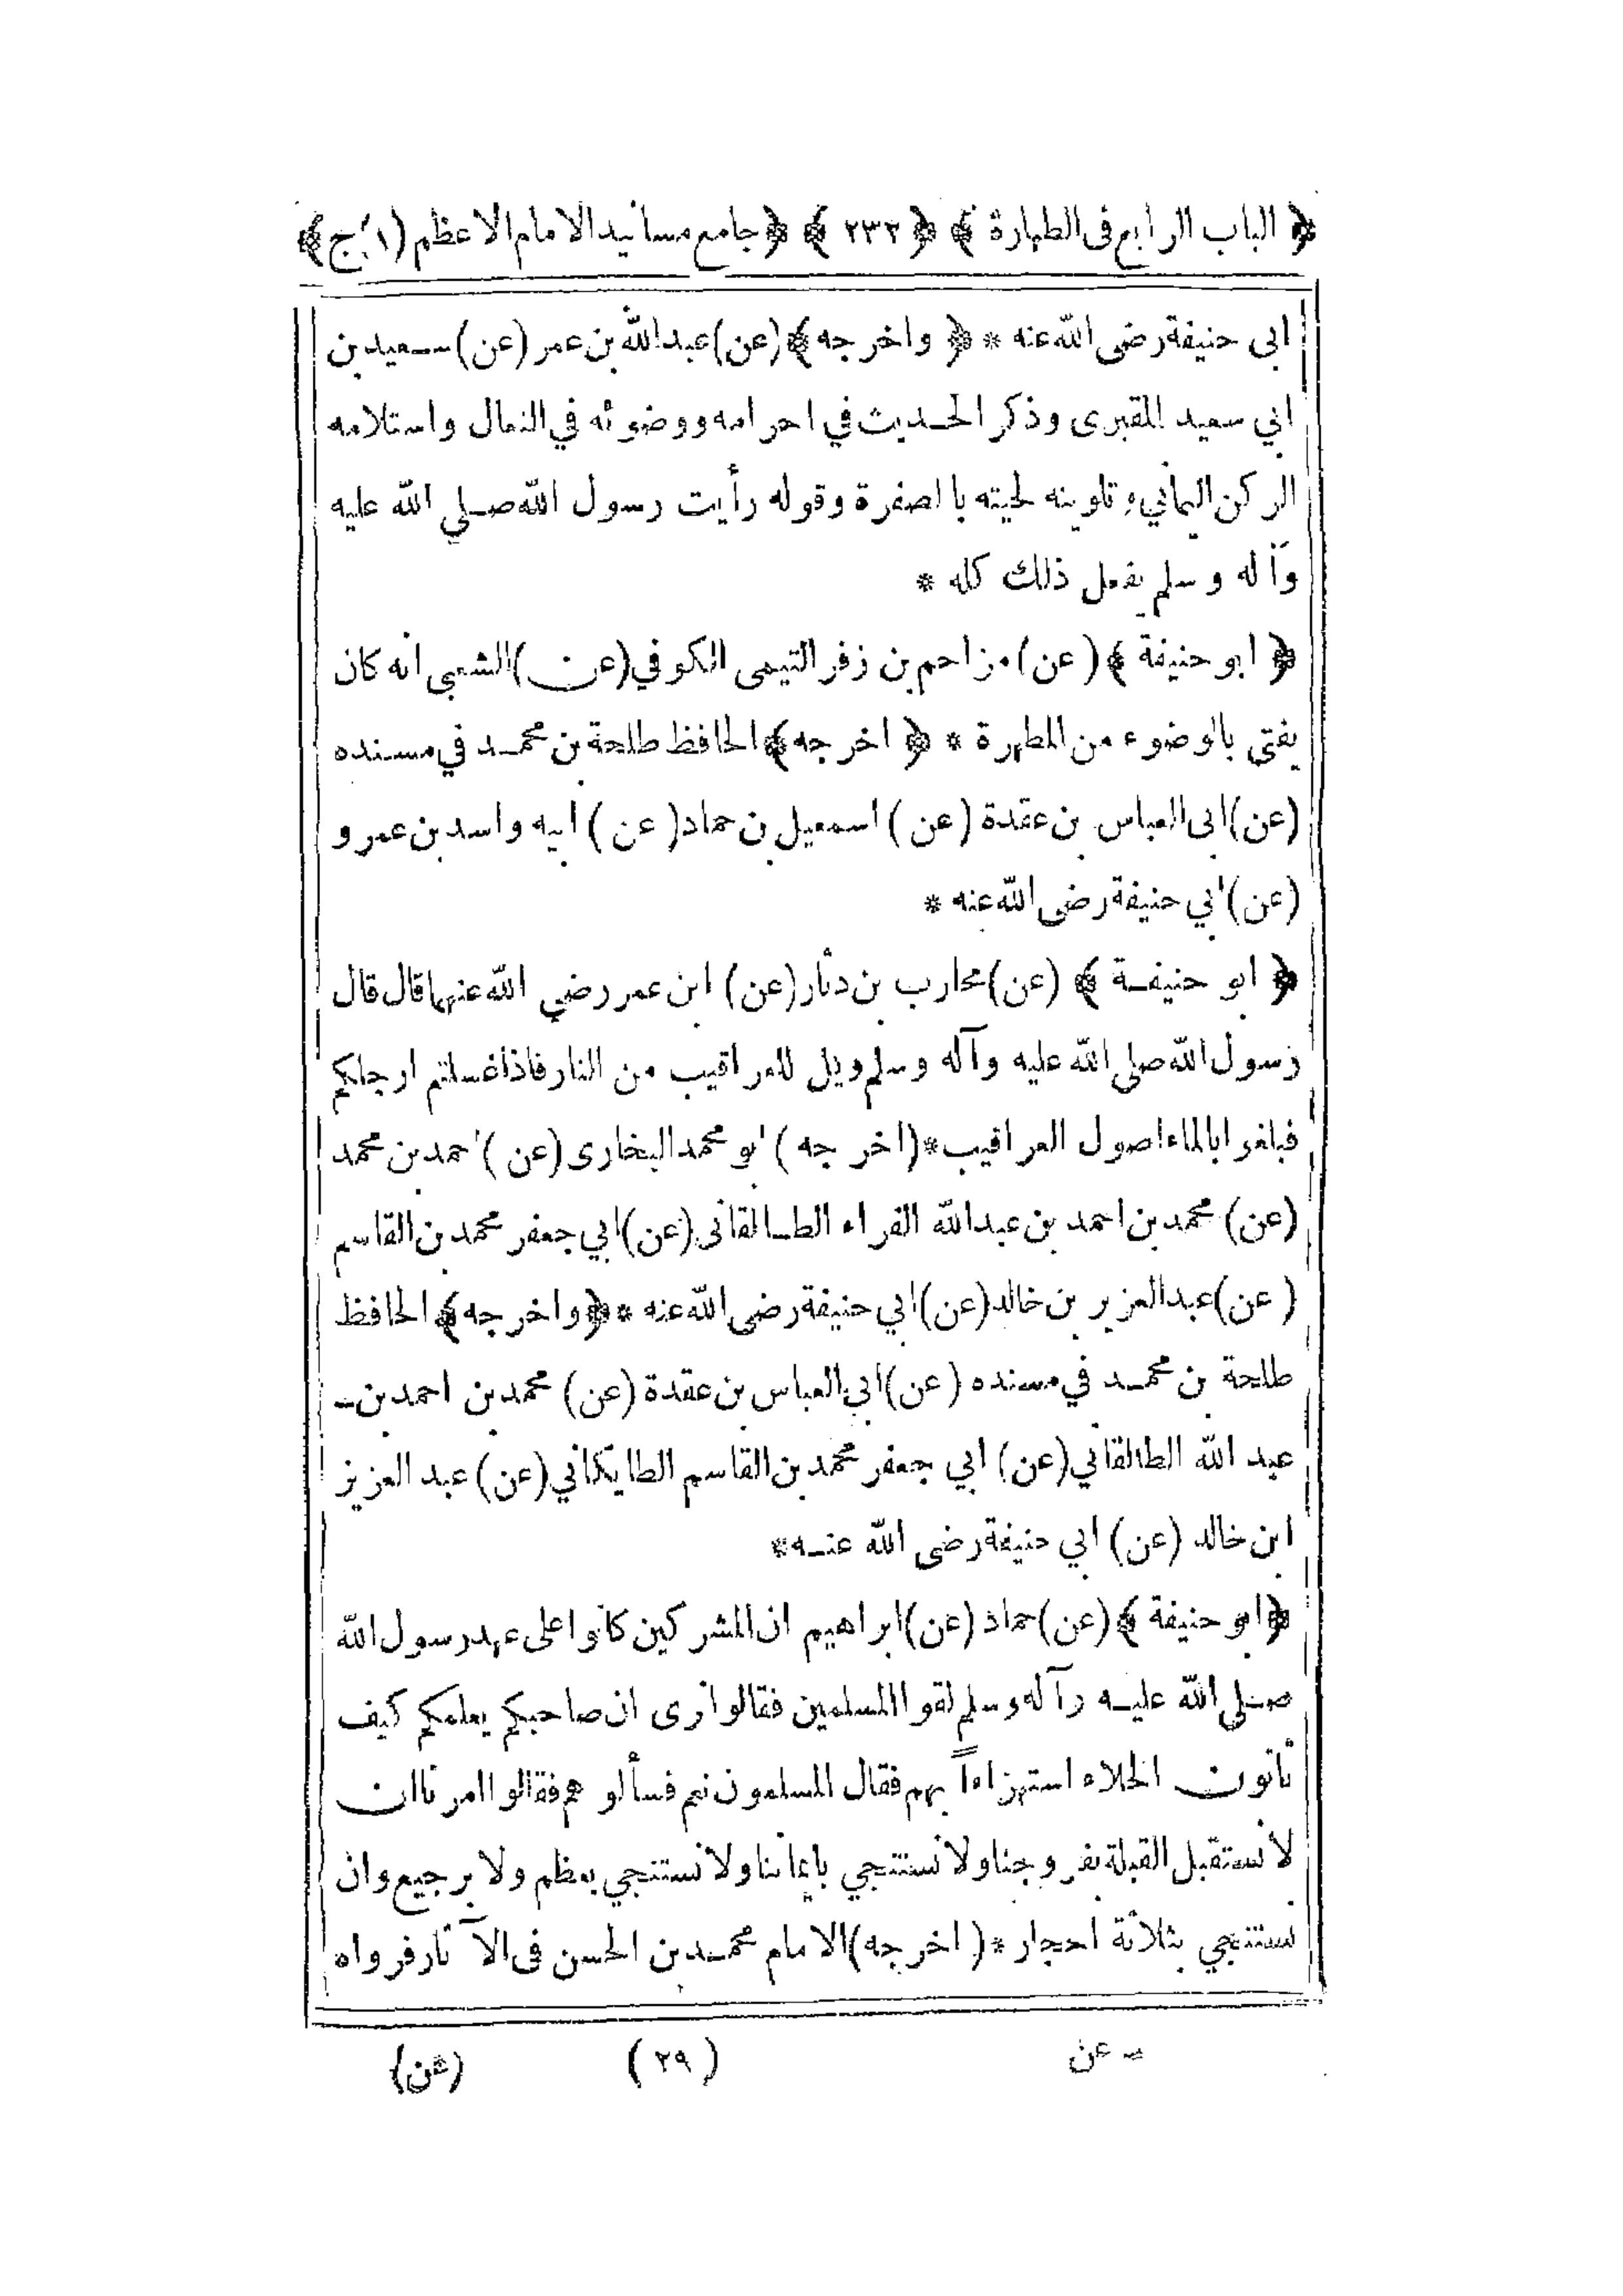 ﴿ الباب الرابع فى الطهارة ﴾ ﴿ ٢٣٢ ﴾ ﴿ جامع مسانيد الامام الاعظم (١) ج ﴾
ابى حنيفة رضى الله عنه * ﴿ واخرجه ﴾ (عن) عبدالله بن عمر (عن) سعيد بن
ابي سعيد المقبرى وذكر الحديث في احرامه ووضوئه في النعال واستلامه
الركن اليماني وتلوينه لحيته بالصفرة وقوله رأيت رسول الله صلي الله عليه
وآله وسلم يفعل ذلك كله *
﴿ ابو حنيفة ﴾ (عن) مزاحم بن زفر التيمى الكوفي (عن) الشعبى انه كان
يفتى بالوضوء من المطهرة * ﴿ اخرجه ﴾ الحافظ طلحة بن محمد في مسنده
(عن) ابى العباس بن عقدة (عن) اسمعيل بن حماد (عن) ابيه واسد بن عمرو
(عن) ابي حنيفة رضى الله عنه *
﴿ ابو حنيفة ﴾ (عن) محارب بن دثار (عن) ابن عمر رضي الله عنهما قال قال
رسول الله صلى الله عليه وآله وسلم ويل للعراقيب من النار فاذا غسلتم ارجلكم
فبلغوا بالماء اصول العراقيب * (اخرجه) ابو محمد البخارى (عن) احمد بن محمد
(عن) محمد بن احمد بن عبدالله الفراء الطالقانى (عن) ابي جعفر محمد بن القاسم
(عن) عبدالعزيز بن خالد (عن) ابي حنيفة رضى الله عنه * ﴿ واخرجه ﴾ الحافظ
طلحة بن محمد في مسنده (عن) ابي العباس بن عقدة (عن) محمد بن احمد بن
عبد الله الطالقاني (عن) ابي جعفر محمد بن القاسم الطايكاني (عن) عبد العزيز
ابن خالد (عن) ابي حنيفة رضى الله عنه *
﴿ ابو حنيفة ﴾ (عن) حماد (عن) ابراهيم ان المشركين كانوا على عهد رسول الله
صلى الله عليه وآله وسلم لقوا المسلمين فقالوا نرى ان صاحبكم يعلمكم كيف
تأتون الخلاء استهزاءاً بهم فقال المسلمون نعم فسألوهم فقالوا امرنا ان
لا نستقبل القبلة بفروجنا ولا نستنجي بايماننا ولا نستنجي بعظم ولا برجيع وان
نستنجي بثلاثة احجار * (اخرجه) الامام محمد بن الحسن فى الآثار فرواه
عن (٢٩) (عن)